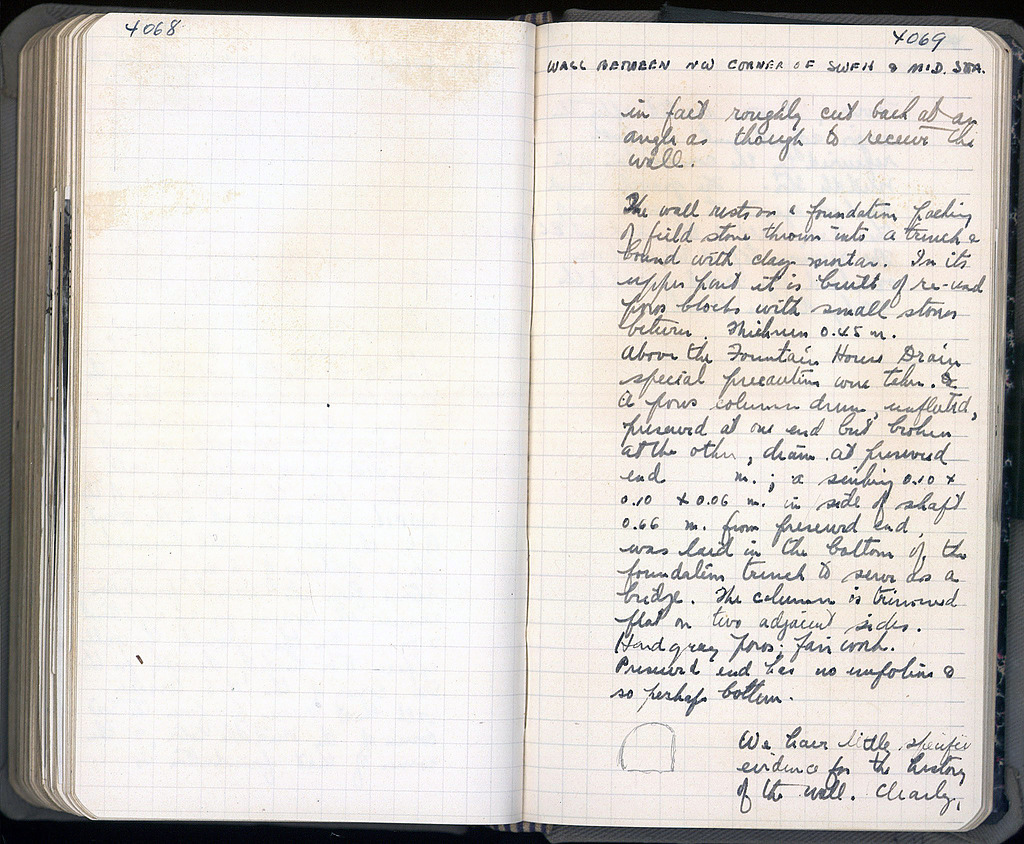 4068
4069
WALL BETWEEN NW CORNER OF SWFH & MID. STOA.
in fact roughly cut back at an
angle as though to receive the
wall.
The wall rests on a foundation packing
of field stone thrown into a trench &
bound with clay mortar. In its
upper part it is built of re-used
poros blocks with small stones
between. Thickness 0.45 m.
Above the Fountain House Drain
special precautions were taken.
A poros column drum, unfluted,
preserved at one end but broken
at the other, diam. at preserved
end m.; a sinking 0.10 x
0.10 x 0.06 m. in side of shaft
0.66 m. from preserved end,
was laid in the bottom of the
foundation trench to serve as a
bridge. The column is trimmed
flat on two adjacent sides.
Hard gray poros; fair work.
Preserved end has no &
so perhaps bottom.
We have little specific
evidence for the history
of the wall. Clearly,